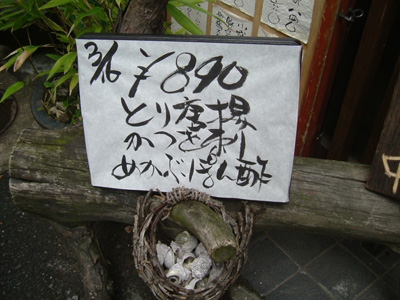 3/16 ¥890
とり唐揚
かつを刺
めかぶぽん酢